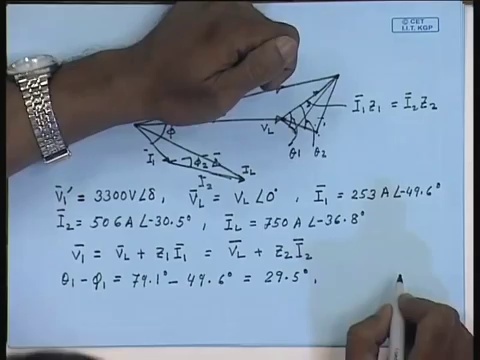 © CET
I.I.T. KGP
Ī₁Z₁ = Ī₂Z₂
V_L
θ₁ θ₂
φ
Ī₁
φ₂
Ī₂
I_L
V̄₁' = 3300V∠δ, V̄_L = V_L∠0°, Ī₁ = 253 A∠-49.6°
Ī₂ = 506 A∠-30.5°, Ī_L = 750 A∠-36.8°
V̄₁ = V̄_L + Z₁Ī₁ = V̄_L + Z₂Ī₂
θ₁ - φ₁ = 79.1° - 49.6° = 29.5°,